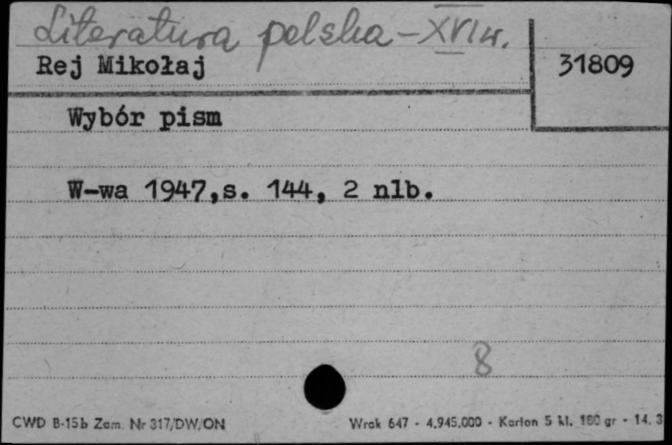 Literatura polska – XVI w.
Rej Mikołaj
31809
Wybór pism
W-wa 1947,s. 144, 2 nlb.
8
CWD B-15b Zam. Nr 317/DW/ON
Wrak 647 - 4.945.000 - Karton 5 kl. 180 gr - 14. 3